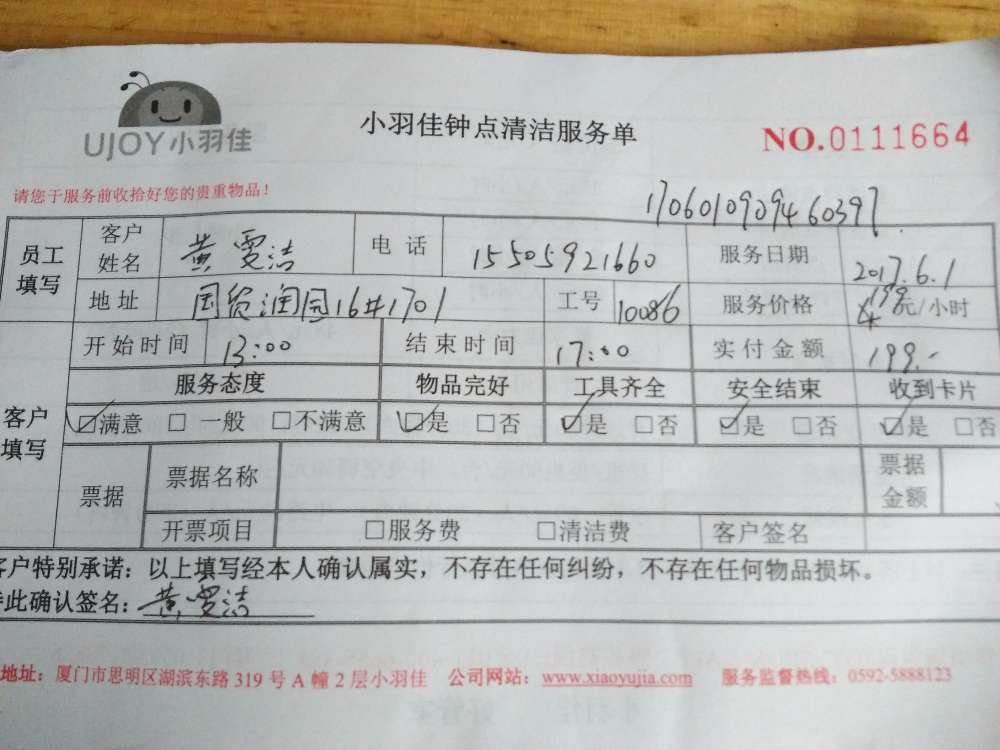 UJOY小羽佳
小羽佳钟点清洁服务单
NO.0111664
请您于服务前收拾好您的贵重物品！
1706010909460397
员工填写 客户姓名 黄雯洁 电话 15505921660 服务日期 2017.6.1
地址 国贸润园16#1701 工号 10086 服务价格 199元/小时
开始时间 13:00 结束时间 17:00 实付金额 199.-
客户填写 服务态度 物品完好 工具齐全 安全结束 收到卡片
☑满意 □一般 □不满意 ☑是 □否 ☑是 □否 ☑是 □否 ☑是 □否
票据 票据名称 票据金额
开票项目 □服务费 □清洁费 客户签名
客户特别承诺：以上填写经本人确认属实，不存在任何纠纷，不存在任何物品损坏。
此确认签名：黄雯洁
地址：厦门市思明区湖滨东路319号A幢2层小羽佳 公司网站：www.xiaoyujia.com 服务监督热线：0592-5888123